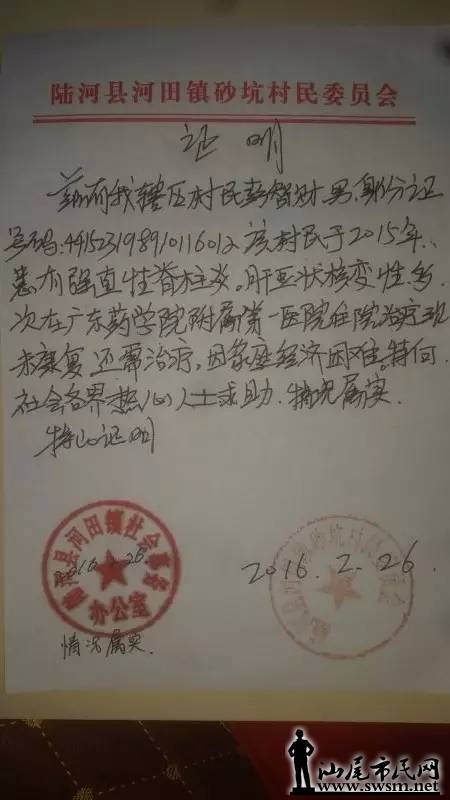 陆河县河田镇砂坑村民委员会
证明
兹有我辖区村民彭智财男,身份证
号码:441523198910116012 该村民于2015年、
患有强直性脊柱炎。肝豆状核变性,多
次在广东药学院附属第一医院住院治疗现
未康复还需治疗,因家庭经济困难。特向
社会各界热心人士求助.情况属实.
特此证明
陆河县河田镇社会事务
办公室
2016.2.26.
情况属实.
汕尾市民网
www.swsm.net